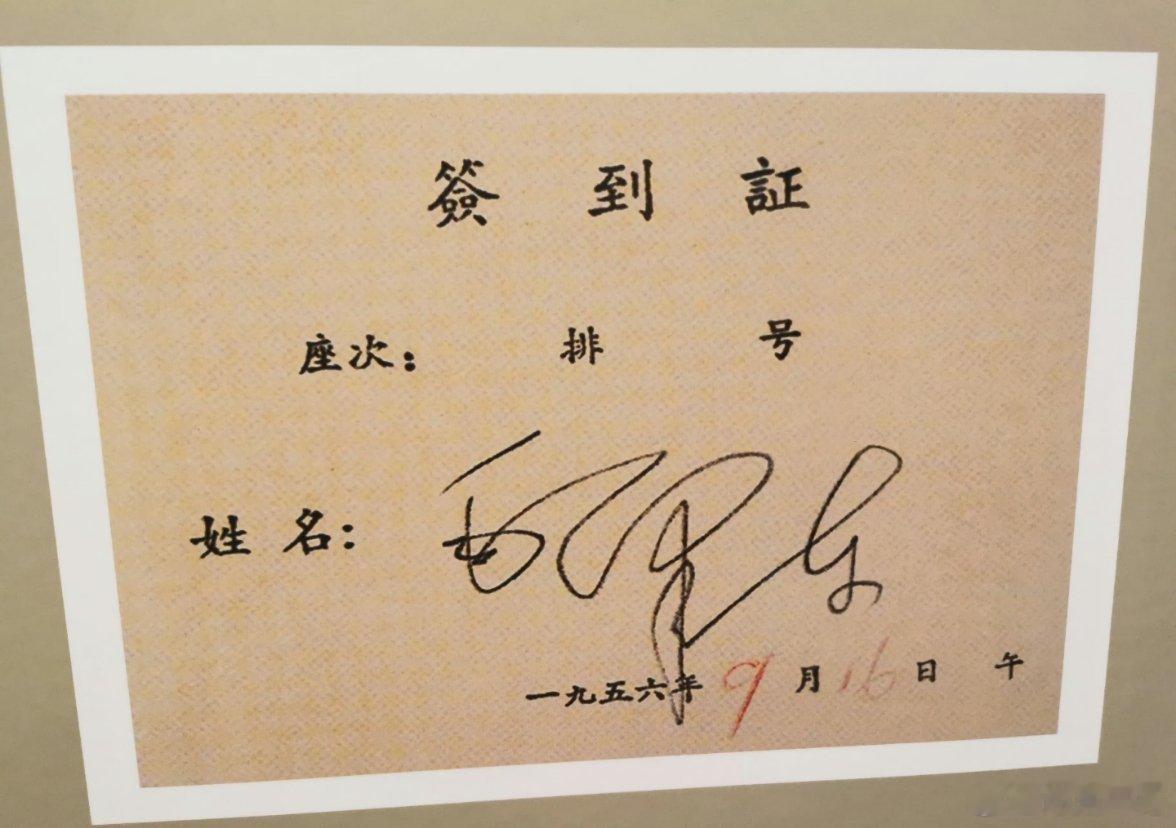 簽到証
座次： 排 号
姓名：毛泽东
一九五六年9月16日 午